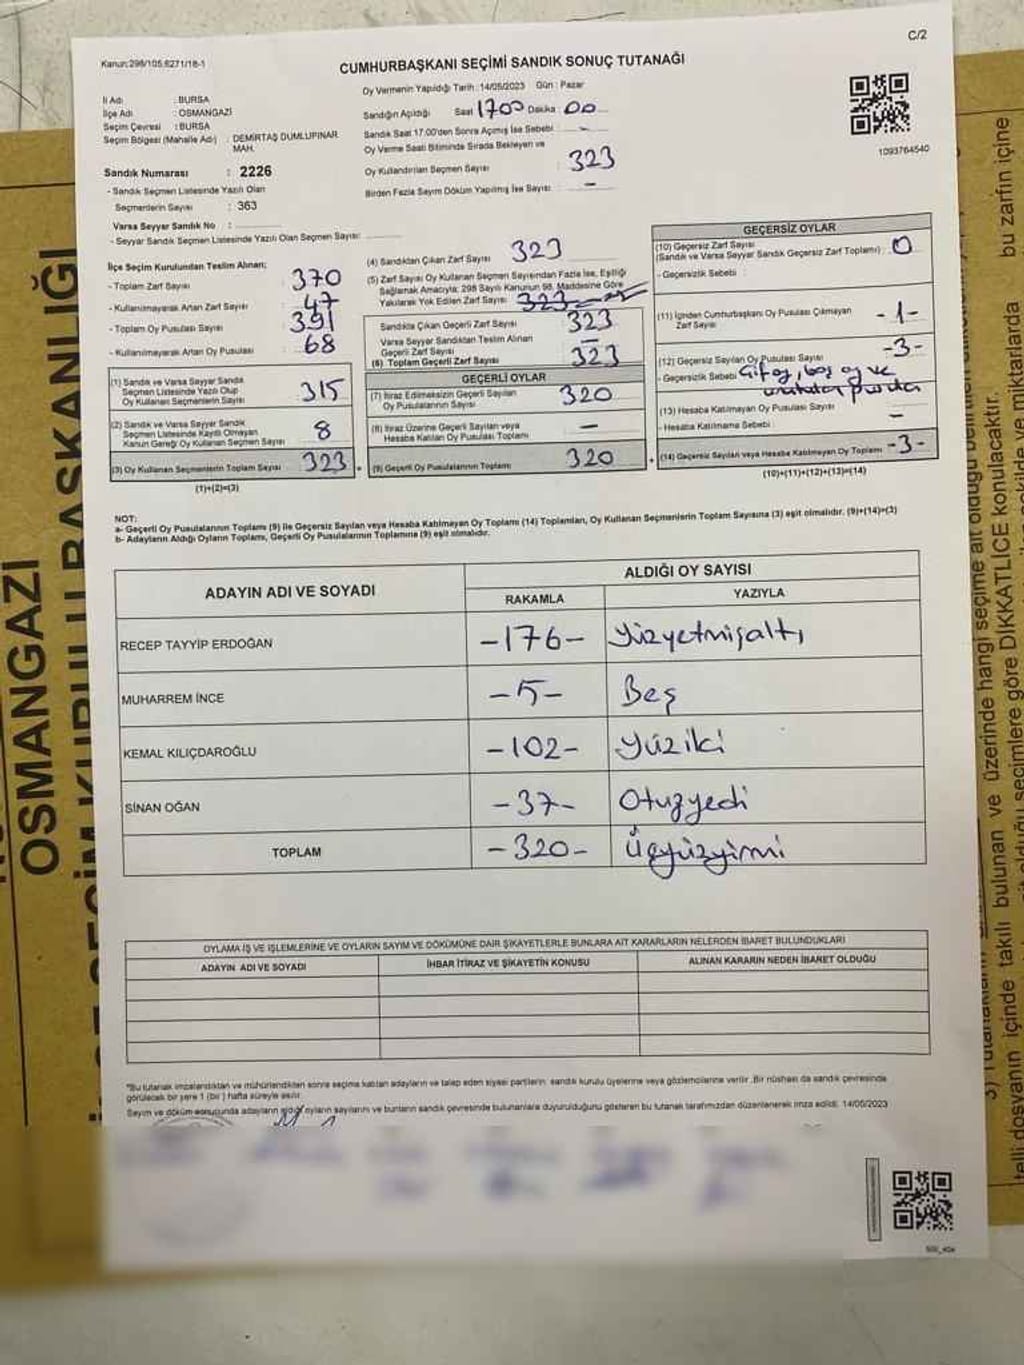 C/2
Kanun:298/105,6271/18-1
CUMHURBAŞKANI SEÇİMİ SANDIK SONUÇ TUTANAĞI
İl Adı : BURSA
İlçe Adı : OSMANGAZİ
Seçim Çevresi : BURSA
Seçim Bölgesi (Mahalle Adı) : DEMİRTAŞ DUMLUPINAR MAH.
Sandık Numarası : 2226
- Sandık Seçmen Listesinde Yazılı Olan
Seçmenlerin Sayısı : 363
Varsa Seyyar Sandık No :
- Seyyar Sandık Seçmen Listesinde Yazılı Olan Seçmen Sayısı:
Oy Vermenin Yapıldığı Tarih :14/05/2023 Gün : Pazar
Sandığın Açıldığı Saat 1700 Dakika : 00
Sandık Saat 17.00'den Sonra Açılmış İse Sebebi : -
Oy Verme Saati Bitiminde Sırada Bekleyen ve
Oy Kullandırılan Seçmen Sayısı : 323
Birden Fazla Sayım Döküm Yapılmış İse Sayısı : -
1093764540
İlçe Seçim Kurulundan Teslim Alınan;
- Toplam Zarf Sayısı : 370
- Kullanılmayarak Artan Zarf Sayısı : 47
- Toplam Oy Pusulası Sayısı : 391
- Kullanılmayarak Artan Oy Pusulası : 68
(1) Sandık ve Varsa Seyyar Sandık
Seçmen Listesinde Yazılı Olup
Oy Kullanan Seçmenlerin Sayısı : 315
(2) Sandık ve Varsa Seyyar Sandık
Seçmen Listesinde Kayıtlı Olmayan
Kanun Gereği Oy Kullanan Seçmen Sayısı : 8
(3) Oy Kullanan Seçmenlerin Toplam Sayısı : 323
(1)+(2)=(3)
(4) Sandıktan Çıkan Zarf Sayısı : 323
(5) Zarf Sayısı Oy Kullanan Seçmen Sayısından Fazla İse, Eşitliği
Sağlamak Amacıyla; 298 Sayılı Kanunun 98. Maddesine Göre
Yakılarak Yok Edilen Zarf Sayısı : 323
Sandıkta Çıkan Geçerli Zarf Sayısı : 323
Varsa Seyyar Sandıktan Teslim Alınan
Geçerli Zarf Sayısı : -
(6) Toplam Geçerli Zarf Sayısı : 323
GEÇERLİ OYLAR
(7) İtiraz Edilmeksizin Geçerli Sayılan
Oy Pusulalarının Sayısı : 320
(8) İtiraz Üzerine Geçerli Sayılan veya
Hesaba Katılan Oy Pusulası Toplamı : -
(9) Geçerli Oy Pusulalarının Toplamı : 320
GEÇERSİZ OYLAR
(10) Geçersiz Zarf Sayısı
(Sandık ve Varsa Seyyar Sandık Geçersiz Zarf Toplamı) : 0
- Geçersizlik Sebebi :
(11) İçinden Cumhurbaşkanı Oy Pusulası Çıkmayan
Zarf Sayısı -1-
(12) Geçersiz Sayılan Oy Pusulası Sayısı -3-
- Geçersizlik Sebebi : Çift oy, boş oy ve
(13) Hesaba Katılmayan Oy Pusulası Sayısı : -
- Hesaba Katılmama Sebebi :
(14) Geçersiz Sayılan veya Hesaba Katılmayan Oy Toplamı -3-
(10)+(11)+(12)+(13)=(14)
NOT:
a- Geçerli Oy Pusulalarının Toplamı (9) ile Geçersiz Sayılan veya Hesaba Katılmayan Oy Toplamı (14) Toplamları, Oy Kullanan Seçmenlerin Toplam Sayısına (3) eşit olmalıdır. (9)+(14)=(3)
b- Adayların Aldığı Oyların Toplamı, Geçerli Oy Pusulalarının Toplamına (9) eşit olmalıdır.
ADAYIN ADI VE SOYADI
ALDIĞI OY SAYISI
RAKAMLA YAZIYLA
RECEP TAYYİP ERDOĞAN -176- Yüzyetmişaltı
MUHARREM İNCE -5- Beş
KEMAL KILIÇDAROĞLU -102- Yüziki
SİNAN OĞAN -37- Otuzyedi
TOPLAM -320- Üçyüzyirmi
OYLAMA İŞ VE İŞLEMLERİNE VE OYLARIN SAYIM VE DÖKÜMÜNE DAİR ŞİKAYETLERLE BUNLARA AİT KARARLARIN NELERDEN İBARET BULUNDUKLARI
ADAYIN ADI VE SOYADI İHBAR İTİRAZ VE ŞİKAYETİN KONUSU ALINAN KARARIN NEDEN İBARET OLDUĞU
*Bu tutanak imzalandıktan ve mühürlendikten sonra seçime katılan adayların ve talep eden siyasi partilerin sandık kurulu üyelerine veya gözlemcilerine verilir. Bir nüshası da sandık çevresinde
görülecek bir yere 1 (bir) hafta süreyle asılır.
Sayım ve döküm sonucunda adayların aldığı oyların sayılarını ve bunların sandık çevresinde bulunanlara duyurulduğunu gösteren bu tutanak tarafımızdan düzenlenerek imza edildi. 14/05/2023
OSMANGAZİ
SEÇİM KURULU BAŞKANLIĞI
bu zarfın içine
telli dosyanın içinde takılı bulunan ve üzerinde hangi seçime ait olduğu
seçimlere göre DİKKATLİCE konulacaktır.